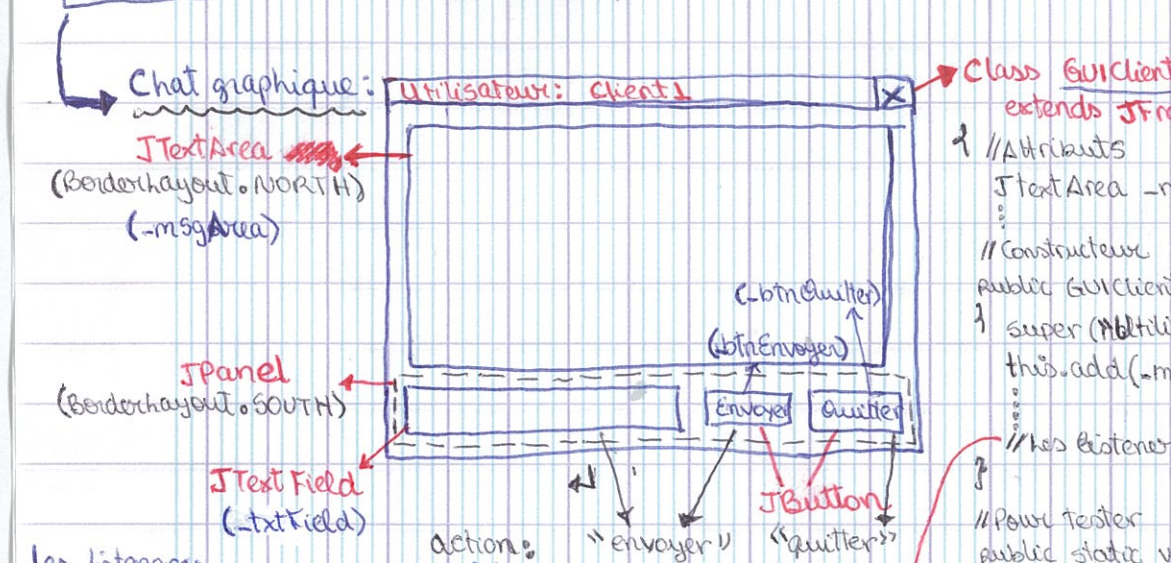 Chat graphique:
Utilisateur: Client1
X
JTextArea
(BorderLayout.NORTH)
(_msgArea)
(_btnQuitter)
(_btnEnvoyer)
JPanel
(BorderLayout.SOUTH)
Envoyer
Quitter
JTextField
(_txtField)
JButton
action: "envoyer" "quitter"
Class GUIClient
extends JFr
{ //Attributs
JtextArea _m
//Constructeur
public GUIClien
{ super(
this.add(_m
//Les listener
}
//Pour tester
public static v
les